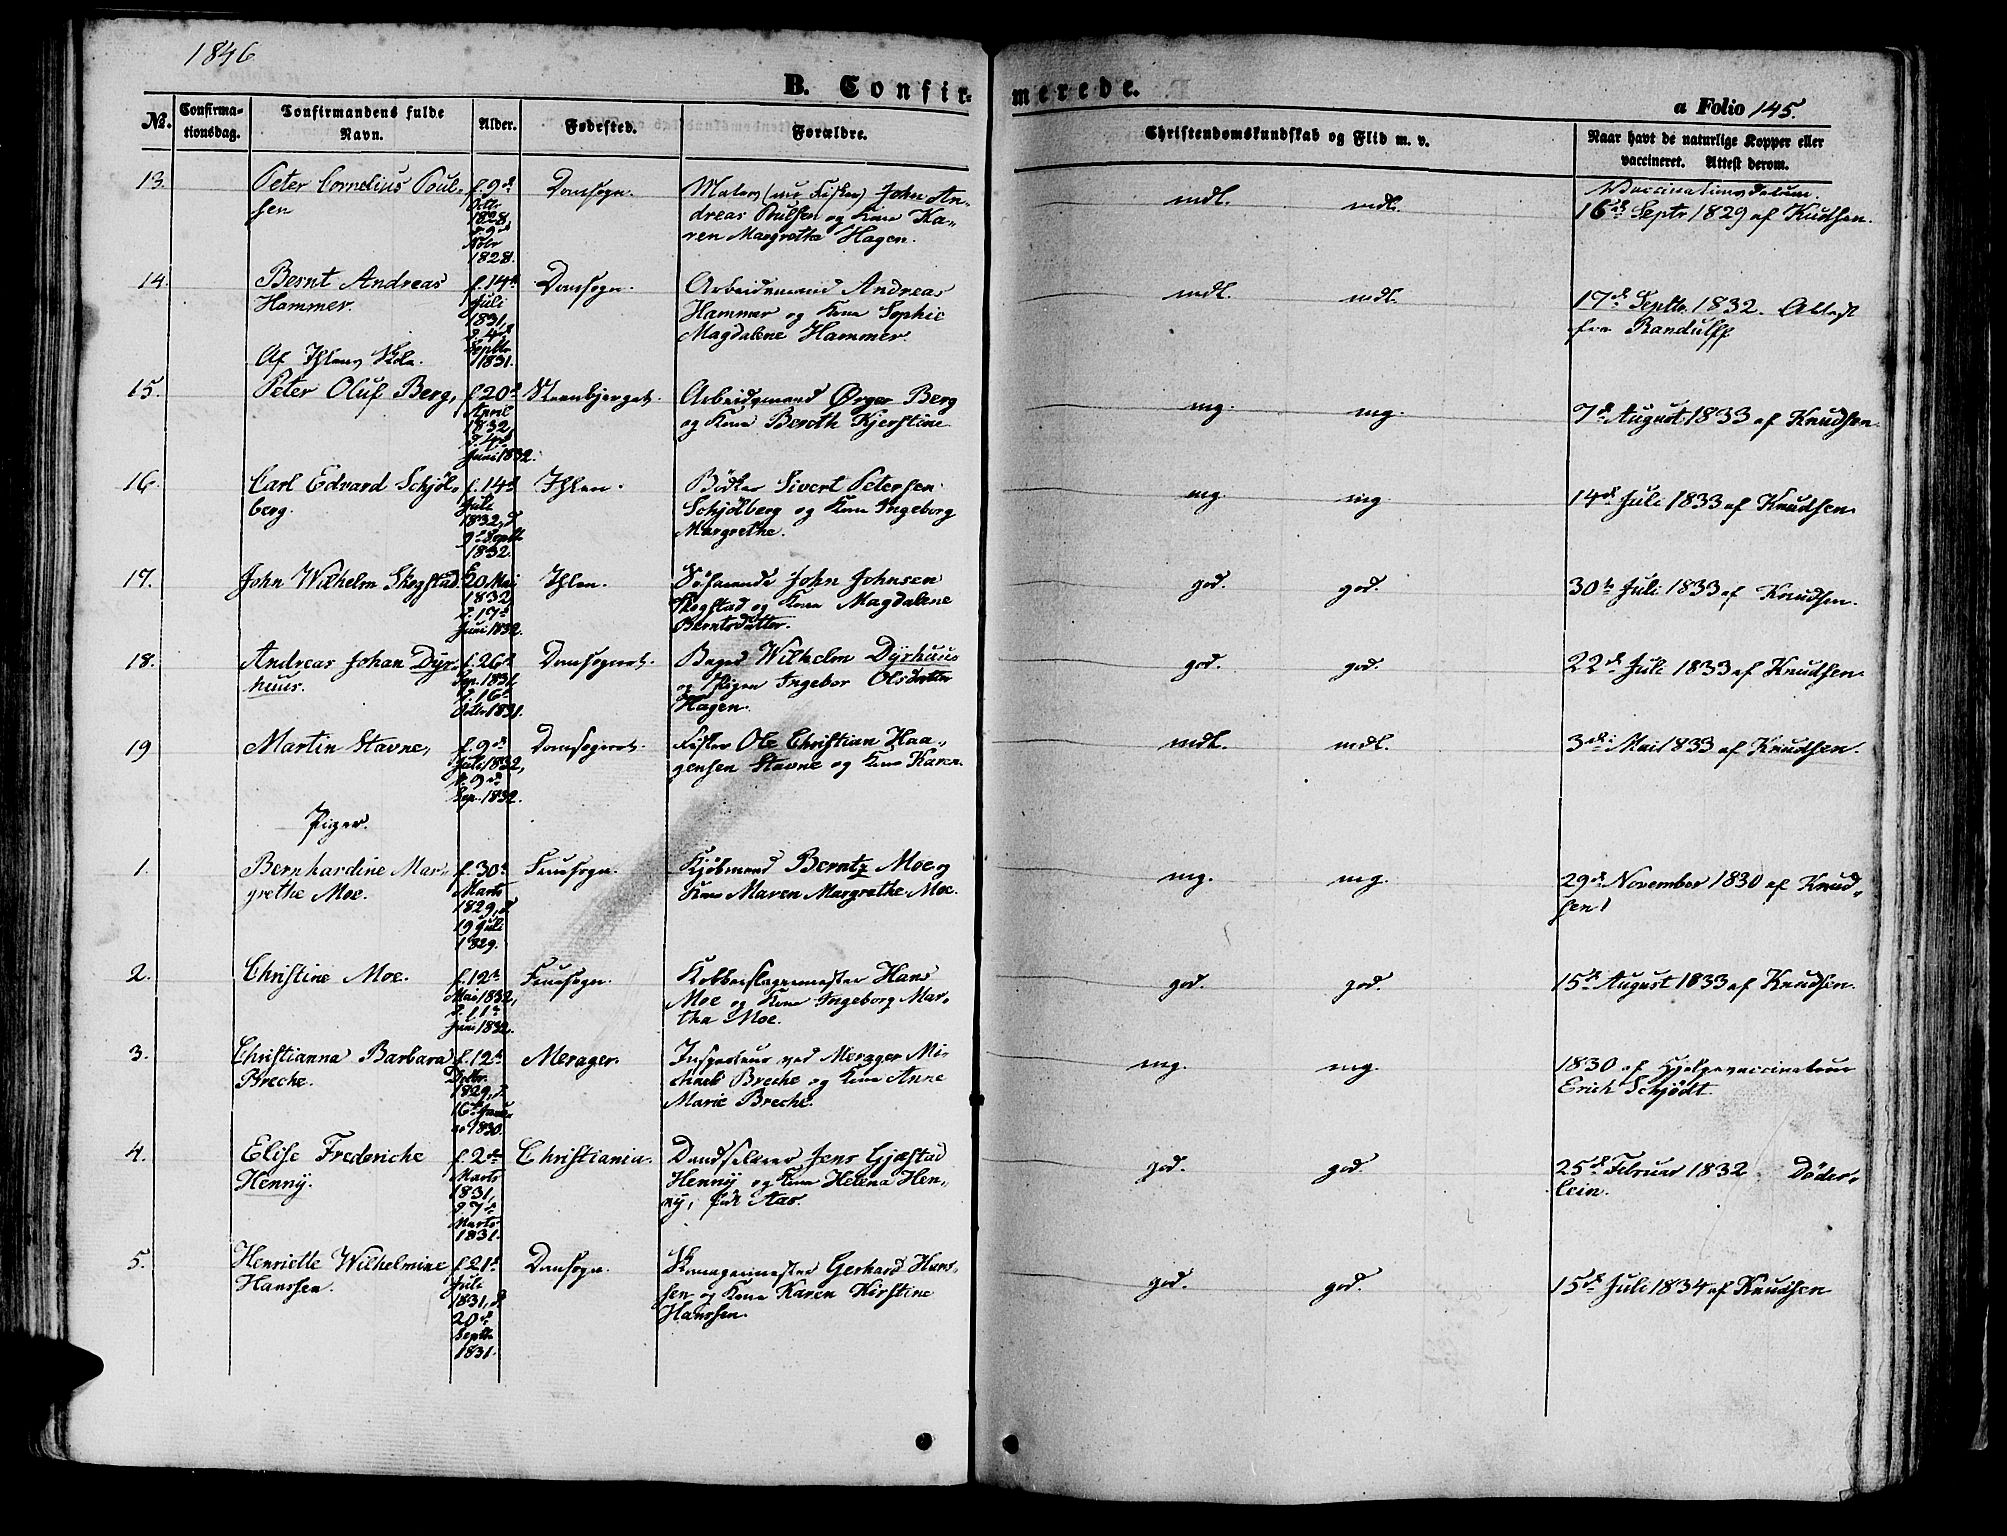 1846
B. Confirmerede.
a Folio 145.
No.
Confirmationsdag.
Confirmandens fulde Navn.
Alder.
Fødested.
Forældre.
Christendomskundskab og Flid m. v.
Naar havt de naturlige Kopper eller vaccineret. Attest derom.
13. Peter Cornelius Poul-
sen
f. 9de Octbr 1828, d. 9de Nvbr 1828.
Domsogn.
Maler (nu Fisker) John An-
dreas Poulsen og Kone Ka-
ren Margrethe Hagen.
mdl. mdl.
Vaccinationsdatum.
16de Septr 1829 af Knudsen.
14. Bernt Andreas
Hammer.
Af Ihlens Skole.
f. 14de Juli 1831, d. 4de Septbr 1831.
Domsogn.
Arbeidsmand Andreas
Hammer og Kone Sophie
Magdalene Hammer.
mdl. mdl.
17de Septbr. 1832. Attest
fra Randulff
15. Peter Oluf Berg,
f. 20de April 1832, d. 4de Juni 1832.
Steenbjerget.
Arbeidsmand Ørger Berg
og Kone Beroth Kjerstine
mg. mg.
7de August 1833 af Knudsen.
16. Carl Edvard Schjøl-
berg.
f. 14de Juli 1832, d. 9de Septbr 1832.
Ihlen.
Bødker Sivert Petersen
Schjølberg og Kone Ingeborg
Margrethe.
mg. mg.
14de Juli 1833 af Knudsen.
17. John Wilhelm Skogstad
f. 20 Mai 1832 d. 17de Juni 1832.
Ihlen.
Søfarende John Johnsen
Skogstad og Kone Magdalene
Berntsdatter.
god. god.
30te Juli 1833 af Knudsen.
18. Andreas Johan Dyr-
huus.
f. 26de Sep. 1831 d. 16de Octbr 1831.
Domsognet.
Bager Wilhelm Dyrhuus
og Pigen Ingebor Olsdatter
Hagen.
god. god.
22de Juli 1833 af Knudsen.
19 Martin Stavne,
f. 9de Juli 1832, d. 9de Sep. 1832.
Domsognet.
Fisker Ole Christian Haa-
gensen Stavne og Kone Karen.
mdl. mdl.
3die Mai 1833 af Knudsen.
Piger.
1. Bernhardine Mar-
grethe Moe.
f. 30te Marts 1829, d. 19 Juli 1829.
Fruesogn.
Kjøbmand Berntz Moe og
Kone Maren Margrethe Moe.
mg. mg.
29de November 1830 af Knud-
sen
2. Christine Moe.
f. 12te Mai 1832, d. 11te Juni 1832.
Fruesogn.
Kobberslagermester Hans
Moe og Kone Ingeborg Mar-
tha Moe.
god. god.
15de August 1833 af Knudsen.
3. Christianna Barbara
Breche.
f. 12te Decbr. 1829, d. 16de Janu-
ar 1830.
Merager.
Inspecteur ved Merager Mi-
chael Breche og Kone Anne
Marie Breche.
mg. mg.
1830 af Hjelpevaccinateur
Erich Schjødt.
4. Elise Frederiche
Henny.
f. 2den Marts 1831, d. 7de Marts 1831.
Christiania.
Dandselærer Jens Gjæstad
Henny og Kone Helena Hen-
ny, født Aas.
god. god.
25de Februar 1832. Døder-
lein.
5. Henriette Wilhelmine
Hanssen.
f. 21de Juli 1831, d. 20de Septbr 1831.
Domsogn.
Skomagermester Gerhard Hans-
sen og Kone Karen Kirstine
Hanssen.
god. god.
15de Juli 1834 af Knudsen